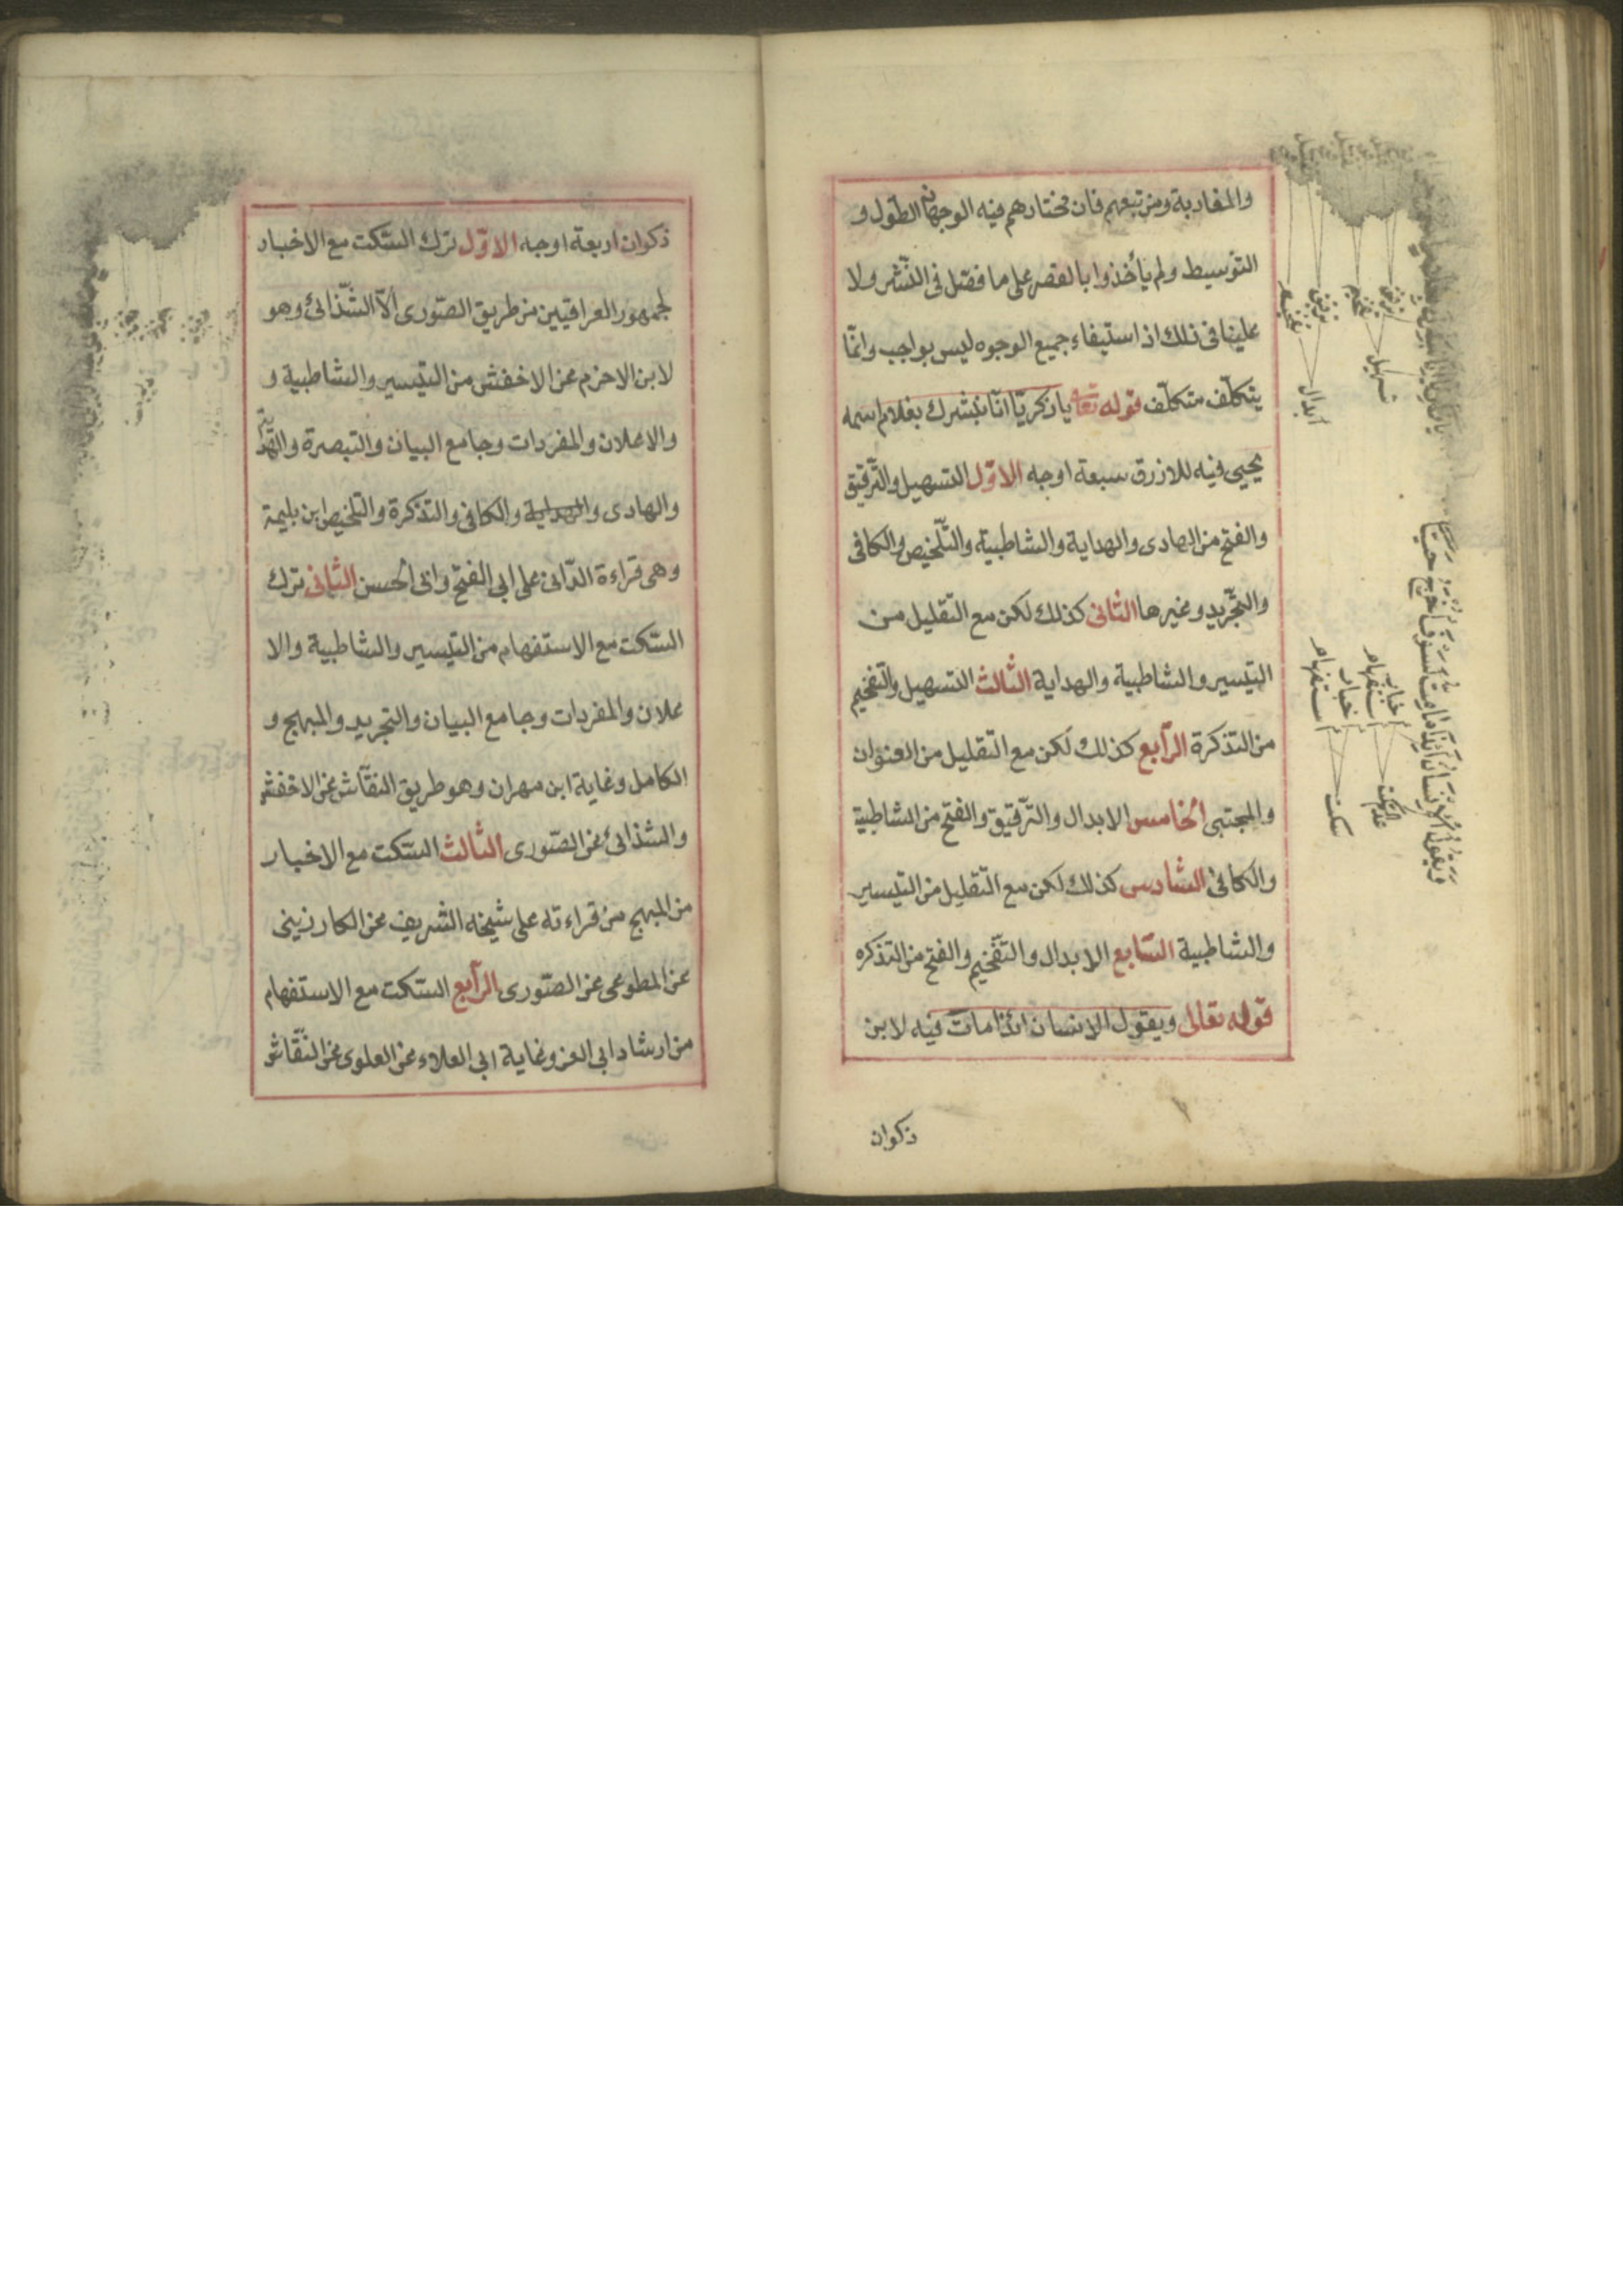 والمغاربة ومن تبعهم فان مختارهم فيه الوجهان الطول و
التوسيط ولم يأخذوا بالقصر على ما فصّل فى النّشر ولا
علينا فى ذلك اذ استيفاء جميع الوجوه ليس بواجب وانّما
يتكلّف متكلّف قوله تعا يا زكريّا انّا نبشرك بغلام اسمه
يحيى فيه للازرق سبعة اوجه الاوّل التسهيل والتّرقيق
والفتح من الهادى والهداية والشاطبية والتّلخيص والكافى
والتّجريد وغيرها الثانى كذلك لكن مع التّقليل من
التيسير والشاطبية والهداية الثالث التسهيل والتّفخيم
من التذكرة الرّابع كذلك لكن مع التّقليل من العنوان
والمجتبى الخامس الابدال والتّرقيق والفتح من الشاطبية
والكافى السّادس كذلك لكن مع التّقليل من التيسير
والشاطبية السّابع الابدال والتّفخيم والفتح من التذكره
قوله تعالى ويقول الانسان ائذا مات فيه لابن
ذكوان
ترقيق
تفخيم
ترقيق
تفخيم
تسهيل
ابدال
ويقول الانسان ائذا ما مت لسوف اخرج حيا
اخبار
استفهام
اخبار
استفهام
عدم السكت
سكت
ذكوان اربعة اوجه الاوّل ترك السّكت مع الاخبار
لجمهور العراقيين من طريق الصّورى الّا الشّذائى وهو
لابن الاخزم عن الاخفش من التيسير والشاطبية و
والاعلان والمفردات وجامع البيان والتبصرة
والهادى والهداية والكافى والتذكرة والتلخيص ابن بليمة
وهى قراءة الدّانى على ابى الفتح وابى الحسن الثانى ترك
السّكت مع الاستفهام من التيسير والشاطبية والا
علان والمفردات وجامع البيان والتجريد والمبهج و
الكامل وغاية ابن مهران وهو طريق النقّاش عن الاخفش
والشذائى عن الصّورى الثالث السّكت مع الاخبار
من المبهج من قراءته على شيخه الشريف عن الكارزينى
عن المطوعى عن الصّورى الرّابع السّكت مع الاستفهام
من ارشاد ابى العز وغاية ابى العلاء عن العلوى عن النّقاش